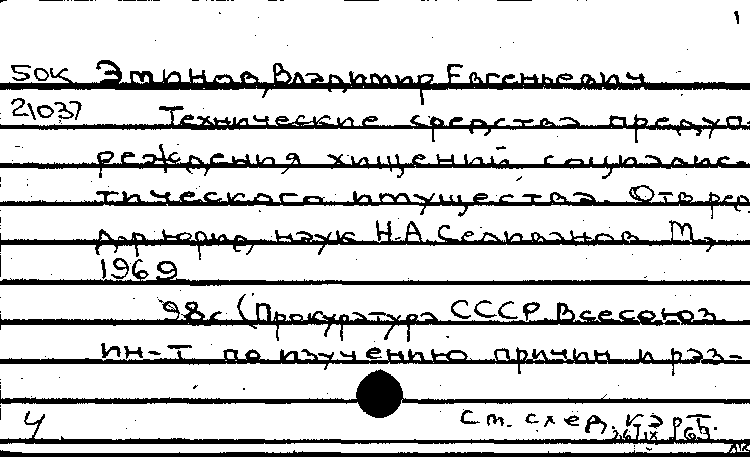 1
50К Эминов, Владимир Евгеньевич
21037 Технические средства предуп
реждения хищений социалис-
тического имущества. Отв ред
д-р юрид. наук Н.А. Селиванов М.,
1969
98с (Прокуратура СССР. Всесоюз
ин-т по изучению причин и раз-
4 См. след. карт.